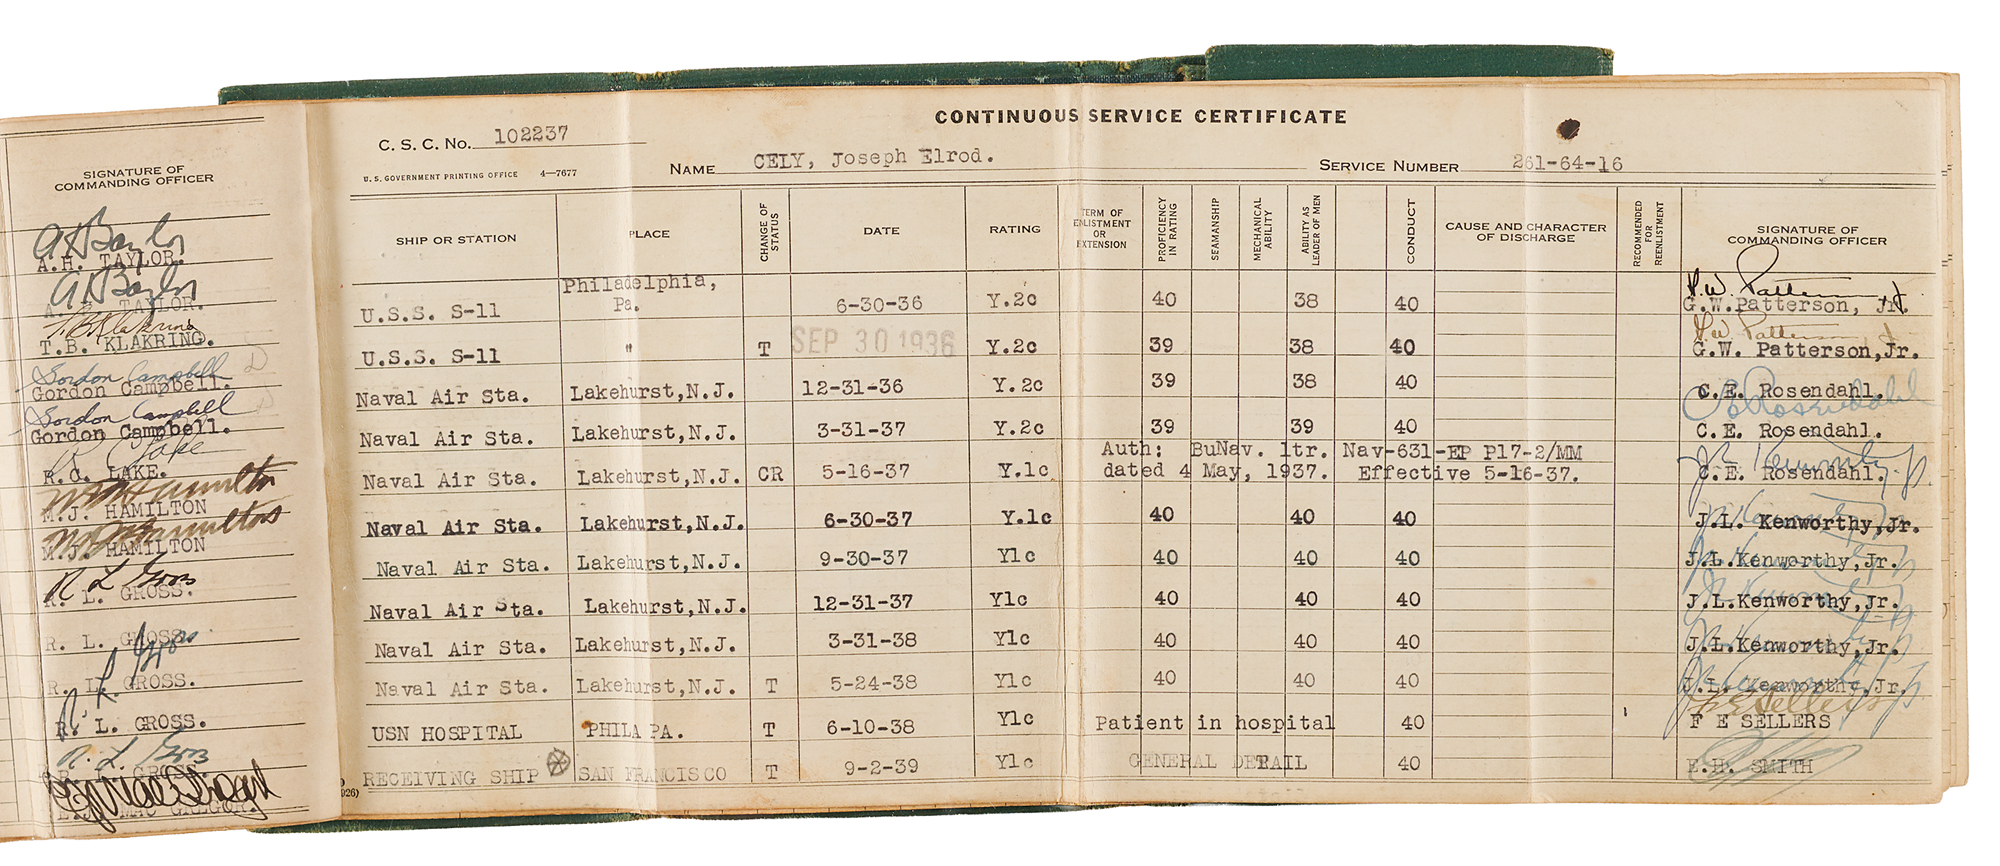 SIGNATURE OF
COMMANDING OFFICER
A.H. TAYLOR.
TAYLOR.
T.B. KLAKRING.
Gordon Campbell
Gordon Campbell.
Gordon Campbell
Gordon Campbell.
R.C. LAKE.
M.J. HAMILTON
M.J. HAMILTON
R. L. GROSS.
R. L. GROSS
R. L. GROSS.
R. L. GROSS.
GROSS
MAC GREGOR.
CONTINUOUS SERVICE CERTIFICATE
C. S. C. No. 102237
U. S. GOVERNMENT PRINTING OFFICE 4—7677
NAME CELY, Joseph Elrod.
SERVICE NUMBER 261-64-16
SHIP OR STATION PLACE CHANGE OF STATUS DATE RATING TERM OF ENLISTMENT OR EXTENSION PROFICIENCY IN RATING SEAMANSHIP MECHANICAL ABILITY ABILITY AS LEADER OF MEN CONDUCT CAUSE AND CHARACTER OF DISCHARGE RECOMMENDED FOR REENLISTMENT SIGNATURE OF COMMANDING OFFICER
U.S.S. S-11 Philadelphia, Pa. 6-30-36 Y.2c 40 38 40 G.W.Patterson, Jr.
U.S.S. S-11 " T SEP 30 1936 Y.2c 39 38 40 G.W. Patterson,Jr.
Naval Air Sta. Lakehurst,N.J. 12-31-36 Y.2c 39 38 40 C.E. Rosendahl.
Naval Air Sta. Lakehurst,N.J. 3-31-37 Y.2c 39 39 40 C.E. Rosendahl.
Auth: BuNav. ltr. Nav-631-EP P17-2/MM
Naval Air Sta. Lakehurst,N.J. CR 5-16-37 Y.1c dated 4 May, 1937. Effective 5-16-37. C.E. Rosendahl.
Naval Air Sta. Lakehurst,N.J. 6-30-37 Y.1c 40 40 40 J.L. Kenworthy,Jr.
Naval Air Sta. Lakehurst,N.J. 9-30-37 Y1c 40 40 40 J.L.Kenworthy,Jr.
Naval Air Sta. Lakehurst,N.J. 12-31-37 Y1c 40 40 40 J.L.Kenworthy,Jr.
Naval Air Sta. Lakehurst,N.J. 3-31-38 Y1c 40 40 40 J.L.Kenworthy,Jr.
Naval Air Sta. Lakehurst,N.J. T 5-24-38 Y1c 40 40 40 J.L. Kenworthy,Jr.
USN HOSPITAL PHILA PA. T 6-10-38 Y1c Patient in hospital 40 F E SELLERS
RECEIVING SHIP SAN FRANCISCO T 9-2-39 Y1c GENERAL DETAIL 40 E.H. SMITH